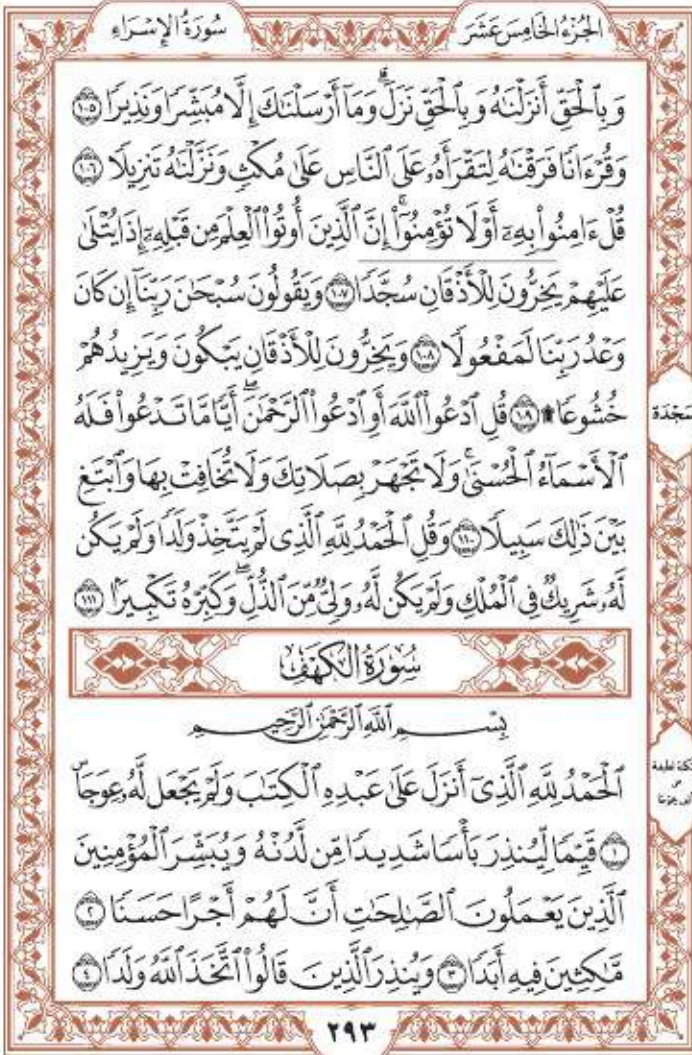 سُورَةُ الإِسْرَاءِ
الجُزْءُ الخَامِسَ عَشَرَ
وَبِٱلْحَقِّ أَنزَلْنَٰهُ وَبِٱلْحَقِّ نَزَلَۗ وَمَآ أَرْسَلْنَٰكَ إِلَّا مُبَشِّرٗا وَنَذِيرٗا ١٠٥
وَقُرْءَانٗا فَرَقْنَٰهُ لِتَقْرَأَهُۥ عَلَى ٱلنَّاسِ عَلَىٰ مُكْثٖ وَنَزَّلْنَٰهُ تَنزِيلٗا ١٠٦
قُلْ ءَامِنُوا۟ بِهِۦٓ أَوْ لَا تُؤْمِنُوٓا۟ۚ إِنَّ ٱلَّذِينَ أُوتُوا۟ ٱلْعِلْمَ مِن قَبْلِهِۦٓ إِذَا يُتْلَىٰ
عَلَيْهِمْ يَخِرُّونَ لِلْأَذْقَانِ سُجَّدٗا ١٠٧ وَيَقُولُونَ سُبْحَٰنَ رَبِّنَآ إِن كَانَ
وَعْدُ رَبِّنَا لَمَفْعُولٗا ١٠٨ وَيَخِرُّونَ لِلْأَذْقَانِ يَبْكُونَ وَيَزِيدُهُمْ
خُشُوعٗا ۩ ١٠٩ قُلِ ٱدْعُوا۟ ٱللَّهَ أَوِ ٱدْعُوا۟ ٱلرَّحْمَٰنَۖ أَيّٗا مَّا تَدْعُوا۟ فَلَهُ
سَجْدَة
ٱلْأَسْمَآءُ ٱلْحُسْنَىٰۚ وَلَا تَجْهَرْ بِصَلَاتِكَ وَلَا تُخَافِتْ بِهَا وَٱبْتَغِ
بَيْنَ ذَٰلِكَ سَبِيلٗا ١١٠ وَقُلِ ٱلْحَمْدُ لِلَّهِ ٱلَّذِى لَمْ يَتَّخِذْ وَلَدٗا وَلَمْ يَكُن
لَّهُۥ شَرِيكٞ فِى ٱلْمُلْكِ وَلَمْ يَكُن لَّهُۥ وَلِىّٞ مِّنَ ٱلذُّلِّۖ وَكَبِّرْهُ تَكْبِيرَۢا ١١١
سُورَةُ الكَهْفِ
بِسْمِ ٱللَّهِ ٱلرَّحْمَٰنِ ٱلرَّحِيمِ
ٱلْحَمْدُ لِلَّهِ ٱلَّذِىٓ أَنزَلَ عَلَىٰ عَبْدِهِ ٱلْكِتَٰبَ وَلَمْ يَجْعَل لَّهُۥ عِوَجَاۜ
١ قَيِّمٗا لِّيُنذِرَ بَأْسٗا شَدِيدٗا مِّن لَّدُنْهُ وَيُبَشِّرَ ٱلْمُؤْمِنِينَ
ٱلَّذِينَ يَعْمَلُونَ ٱلصَّٰلِحَٰتِ أَنَّ لَهُمْ أَجْرًا حَسَنٗا ٢
مَّٰكِثِينَ فِيهِ أَبَدٗا ٣ وَيُنذِرَ ٱلَّذِينَ قَالُوا۟ ٱتَّخَذَ ٱللَّهُ وَلَدٗا ٤
٢٩٣